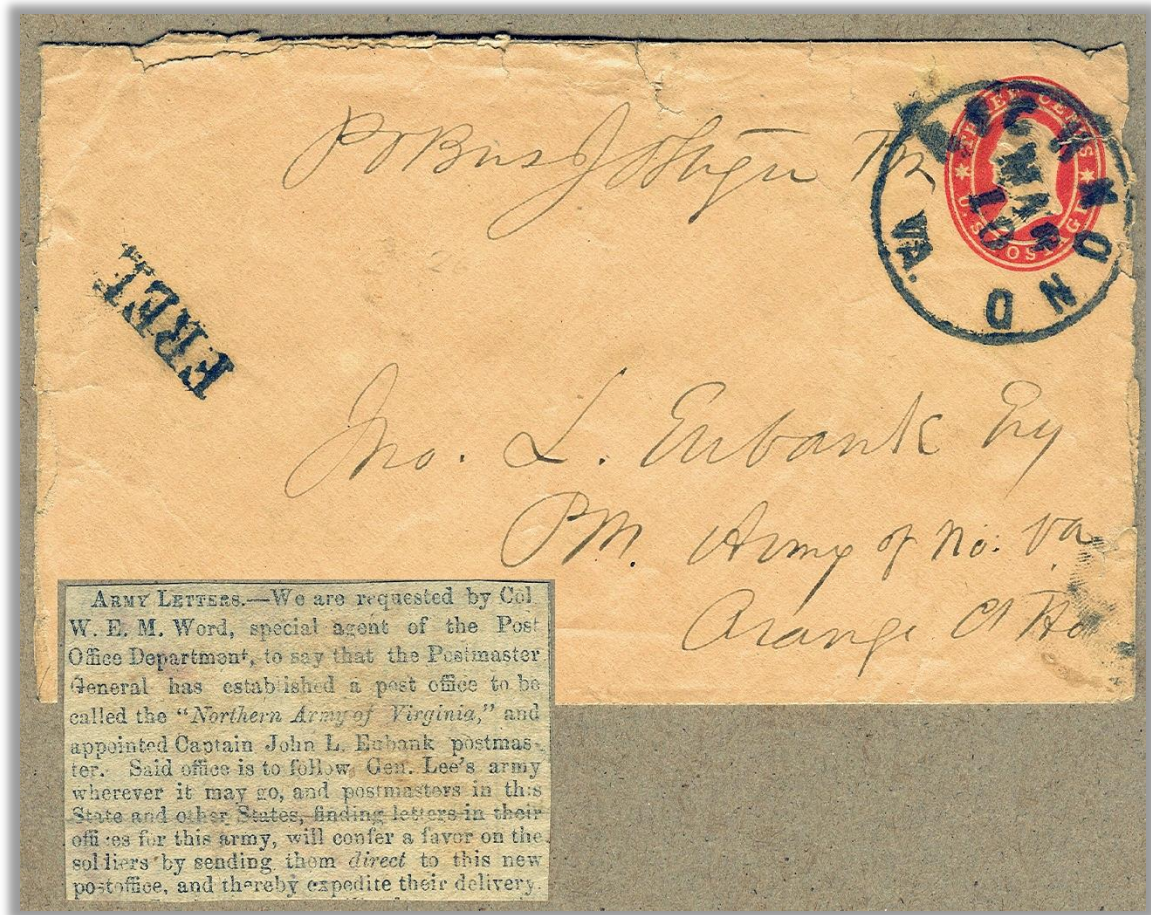 P O Bus
RICHMOND
VA.
MAR
10
THREE CENTS
U.S. POSTAGE
FREE
Jno. L. Eubank Esq
PM. Army of No. Va
Orange Ct Ho
ARMY LETTERS.—We are requested by Col
W. E. M. Word, special agent of the Post
Office Department, to say that the Postmaster
General has established a post office to be
called the "Northern Army of Virginia," and
appointed Captain John L. Eubank postmas-
ter. Said office is to follow Gen. Lee's army
wherever it may go, and postmasters in this
State and other States, finding letters in their
offices for this army, will confer a favor on the
soldiers by sending them direct to this new
postoffice, and thereby expedite their delivery.